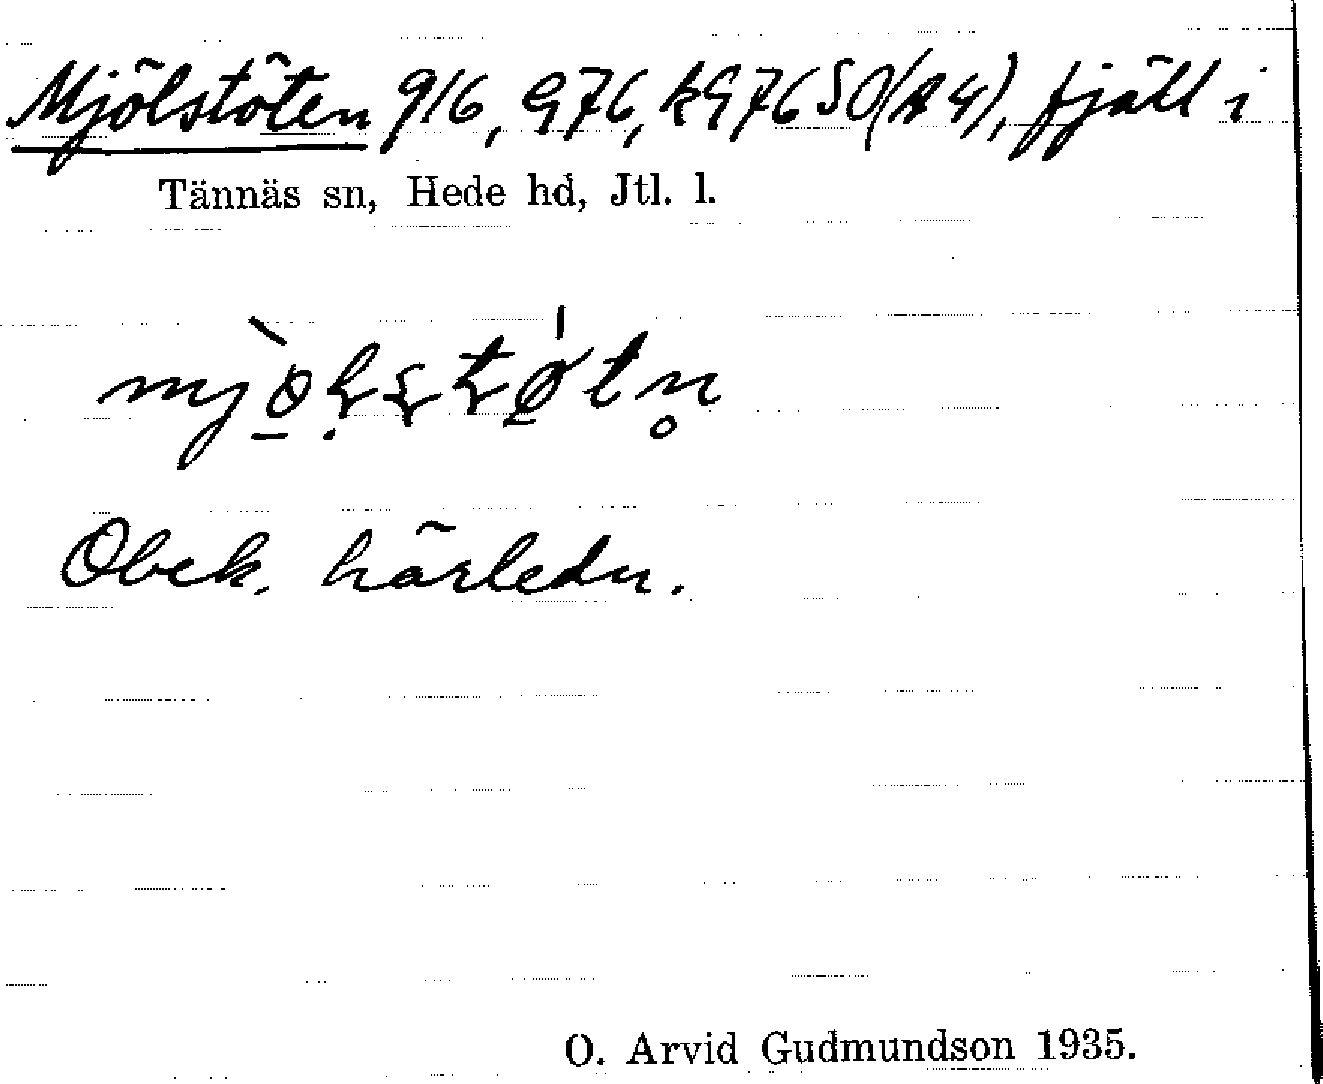 Mjölstöten 916, G76, kG76 SO(A4), fjäll i
Tännäs sn, Hede hd, Jtl. l.
Obek. härledn.
O. Arvid Gudmundson 1935.